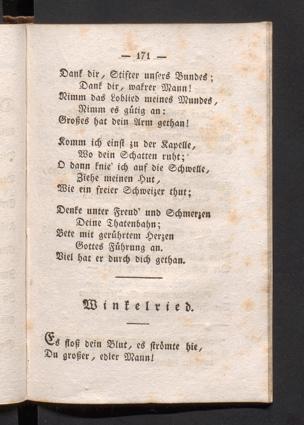 — 171 —
Dank dir, Stifter unsers Bundes;
Dank dir, wakrer Mann!
Nimm das Loblied meines Mundes,
Nimm es gütig an:
Großes hat dein Arm gethan!
Komm ich einst zu der Kapelle,
Wo dein Schatten ruht;
O dann knie' ich auf die Schwelle,
Ziehe meinen Hut,
Wie ein freier Schweizer thut;
Denke unter Freud' und Schmerzen
Deine Thatenbahn;
Bete mit gerührtem Herzen
Gottes Führung an.
Viel hat er durch dich gethan.
Winkelried.
Es floß dein Blut, es strömte hie,
Du großer, edler Mann!